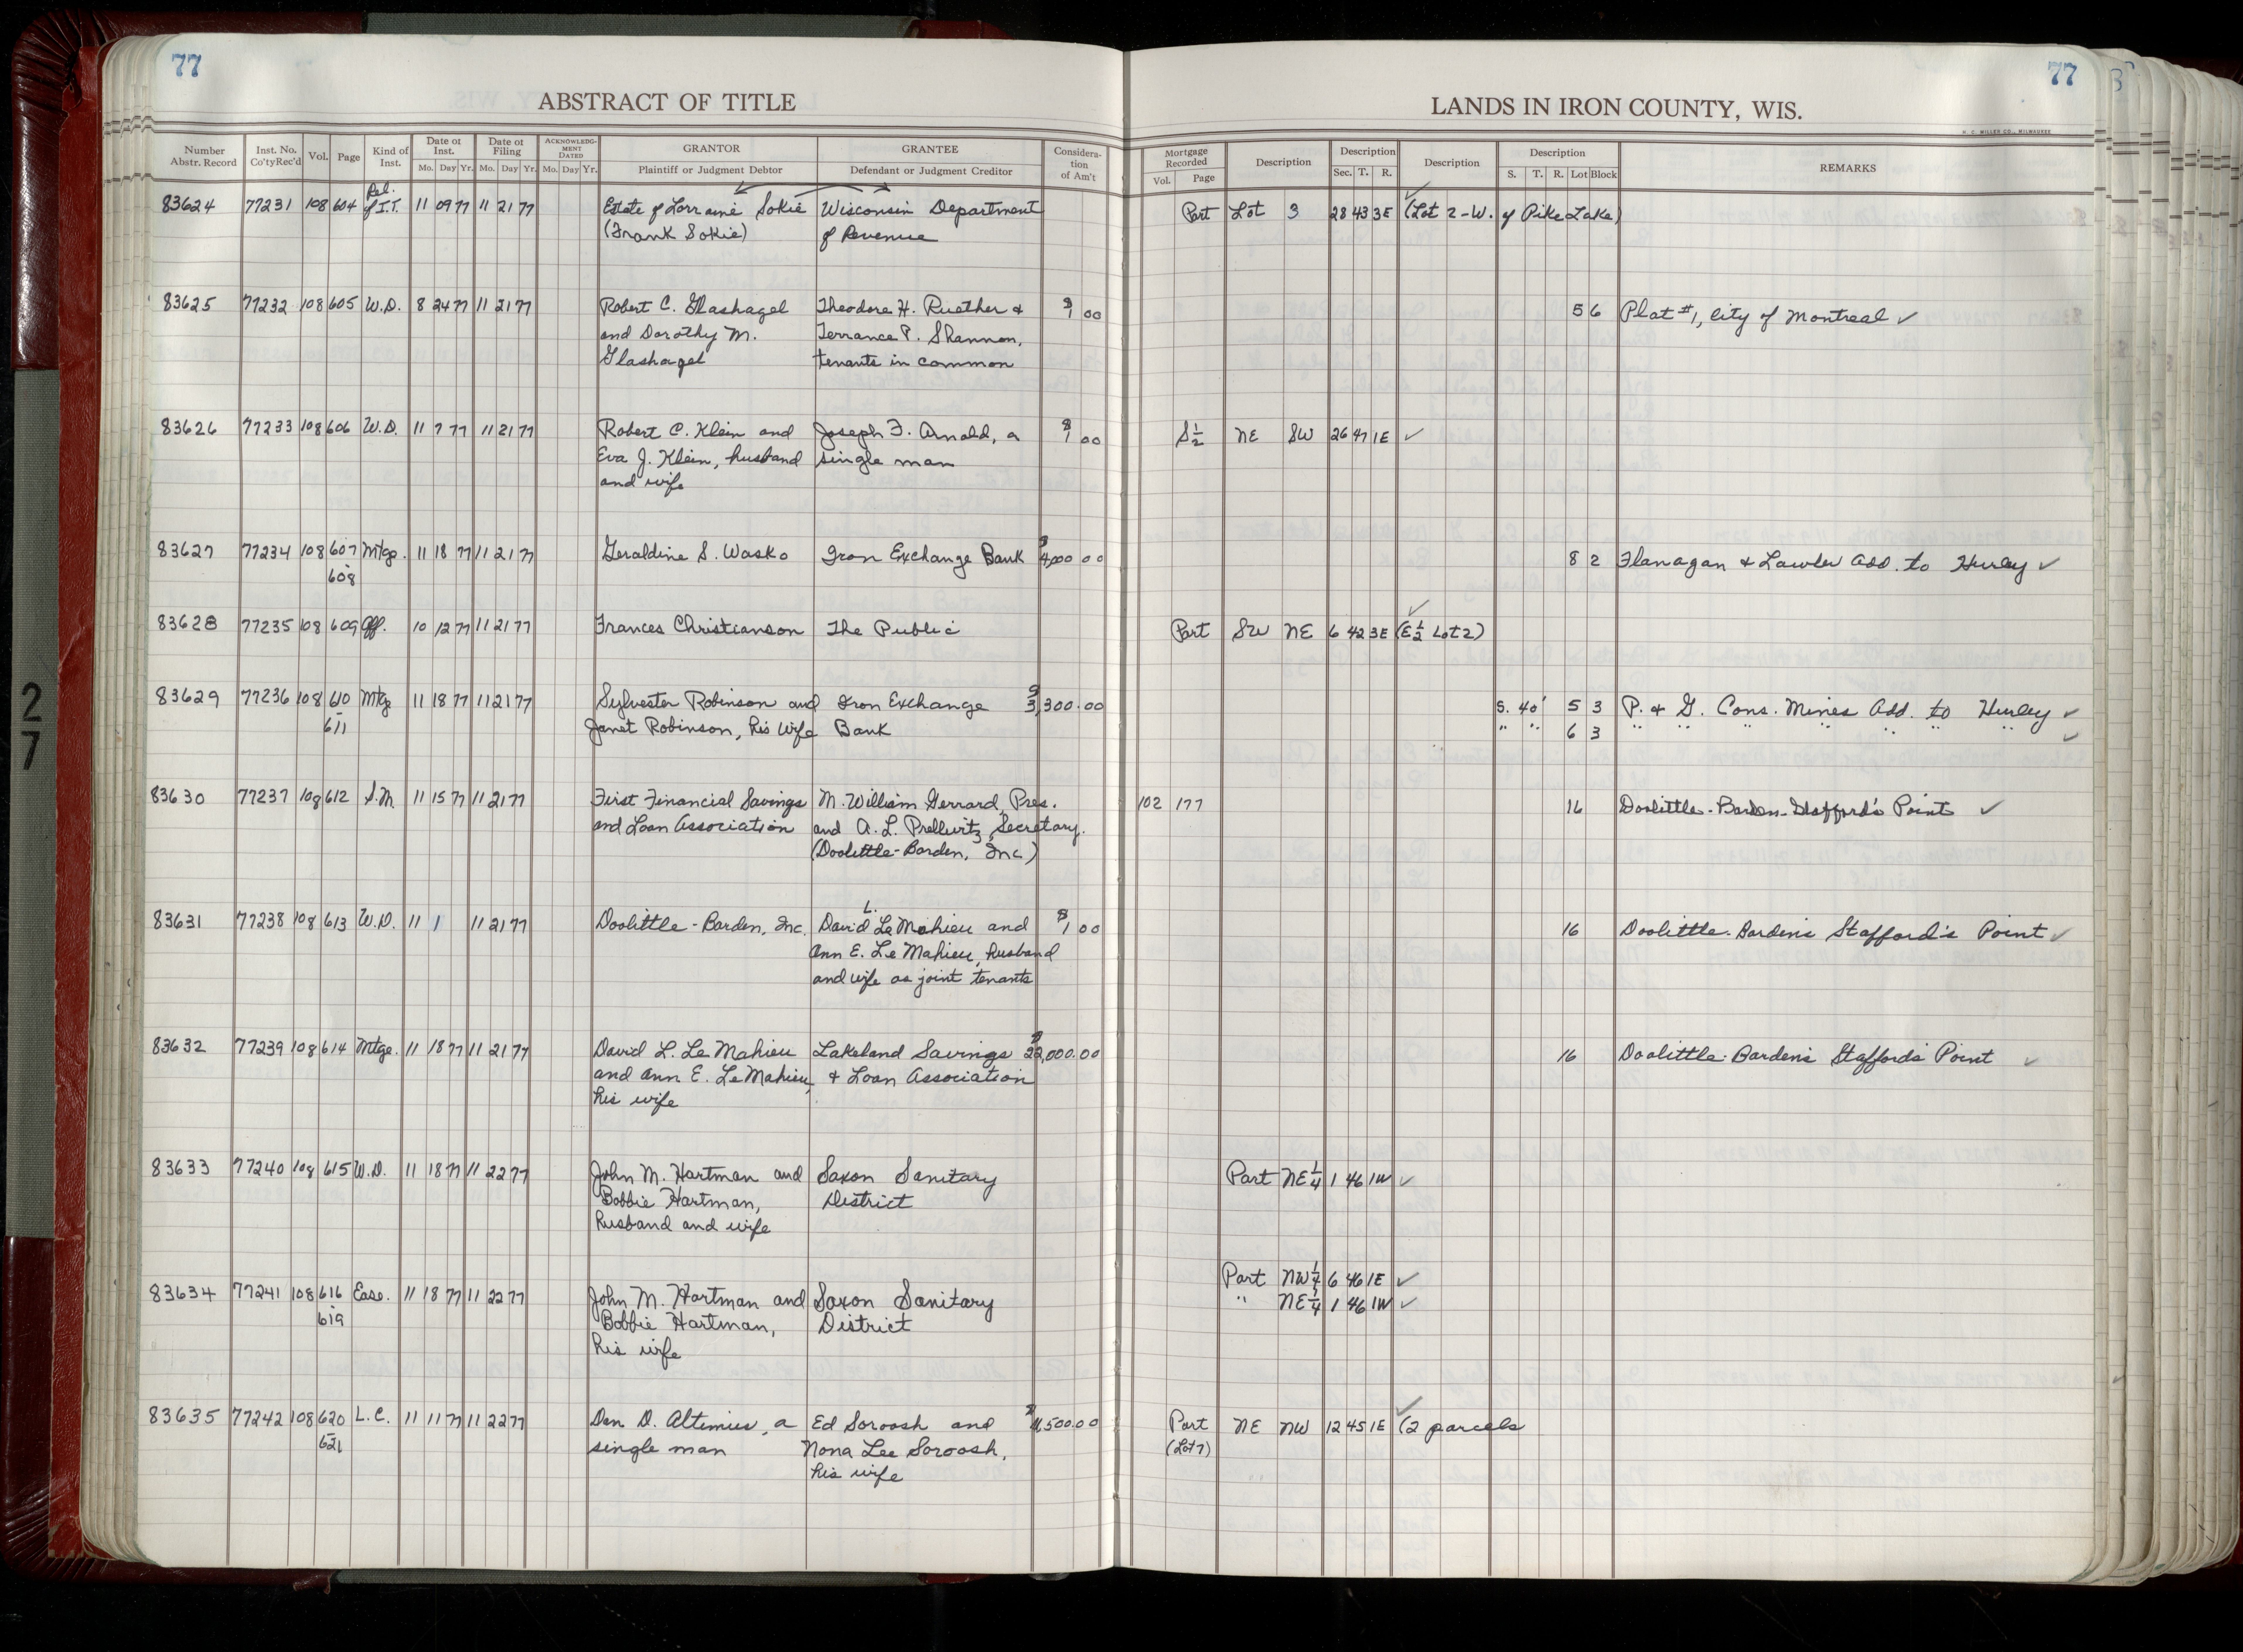 77
ABSTRACT OF TITLE
Number Abstr. Record | Inst. No. Co'ty Rec'd | Vol. | Page | Kind of Inst. | Date of Inst. Mo. Day Yr. | Date of Filing Mo. Day Yr. | ACKNOWLEDG-MENT DATED Mo. Day Yr. | GRANTOR Plaintiff or Judgment Debtor | GRANTEE Defendant or Judgment Creditor | Considera-tion of Am't
83624 77231 108 604 Rel. of I.T. 11 09 77 11 21 77 Estate of Lorraine Sokie Wisconsin Department
(Frank Sokie) of Revenue
83625 77232 108 605 W.D. 8 24 77 11 21 77 Robert C. Glashagel Theodore H. Ruether & $1 00
and Dorothy M. Terrance P. Shannon,
Glashagel tenants in common
83626 77233 108 606 W.D. 11 7 77 11 21 77 Robert C. Klein and Joseph F. Arnold, a $1 00
Eva J. Klein, husband single man
and wife
83627 77234 108 607 Mtge. 11 18 77 11 21 77 Geraldine S. Wasko Iron Exchange Bank $4,000 00
608
83628 77235 108 609 Aff. 10 12 77 11 21 77 Frances Christianson The Public
83629 77236 108 610 Mtg 11 18 77 11 21 77 Sylvester Robinson and Iron Exchange $3,300.00
611 Janet Robinson, his wife Bank
83630 77237 108 612 S.M. 11 15 77 11 21 77 First Financial Savings M. William Gerrard, Pres.
and Loan Association and A. L. Prellwitz, Secretary.
(Doolittle-Barden, Inc)
83631 77238 108 613 W.D. 11 1 11 21 77 Doolittle-Barden, Inc. David L. Le Mahieu and $1 00
Ann E. Le Mahieu, husband
and wife as joint tenants
83632 77239 108 614 Mtge. 11 18 77 11 21 77 David L. Le Mahieu Lakeland Savings $22,000.00
and Ann E. Le Mahieu, & Loan Association
his wife
83633 77240 108 615 W.D. 11 18 77 11 22 77 John M. Hartman and Saxon Sanitary
Bobbie Hartman, District
husband and wife
83634 77241 108 616 Ease. 11 18 77 11 22 77 John M. Hartman and Saxon Sanitary
619 Bobbie Hartman, District
his wife
83635 77242 108 620 L.C. 11 11 77 11 22 77 Dan D. Altimus, a Ed Soroosh and
621 single man Nona Lee Soroosh,
his wife
27
77
LANDS IN IRON COUNTY, WIS.
H. C. MILLER CO., MILWAUKEE
Mortgage Recorded Vol. Page | Description | Description Sec. T. R. | Description | Description S. T. R. Lot Block | REMARKS
Part Lot 3 28 43 3E (Lot 2-W. of Pike Lake)
5 6 Plat #1, city of Montreal ✓
S½ NE SW 26 47 1E ✓
8 2 Flanagan & Lawler Add. to Hurley ✓
Part SW NE 6 42 3E (E½ Lot 2)
S. 40' 5 3 P. & G. Cons. Mines Add. to Hurley ✓
" " 6 3 " " " " " " " ✓
102 177 16 Doolittle-Barden-Stafford's Point ✓
16 Doolittle-Barden's Stafford's Point ✓
16 Doolittle-Barden's Stafford's Point ✓
Part NE¼ 1 46 1W ✓
Part NW¼ 6 46 1E ✓
" NE¼ 1 46 1W ✓
Part NE NW 12 45 1E (2 parcels
(Lot 7)